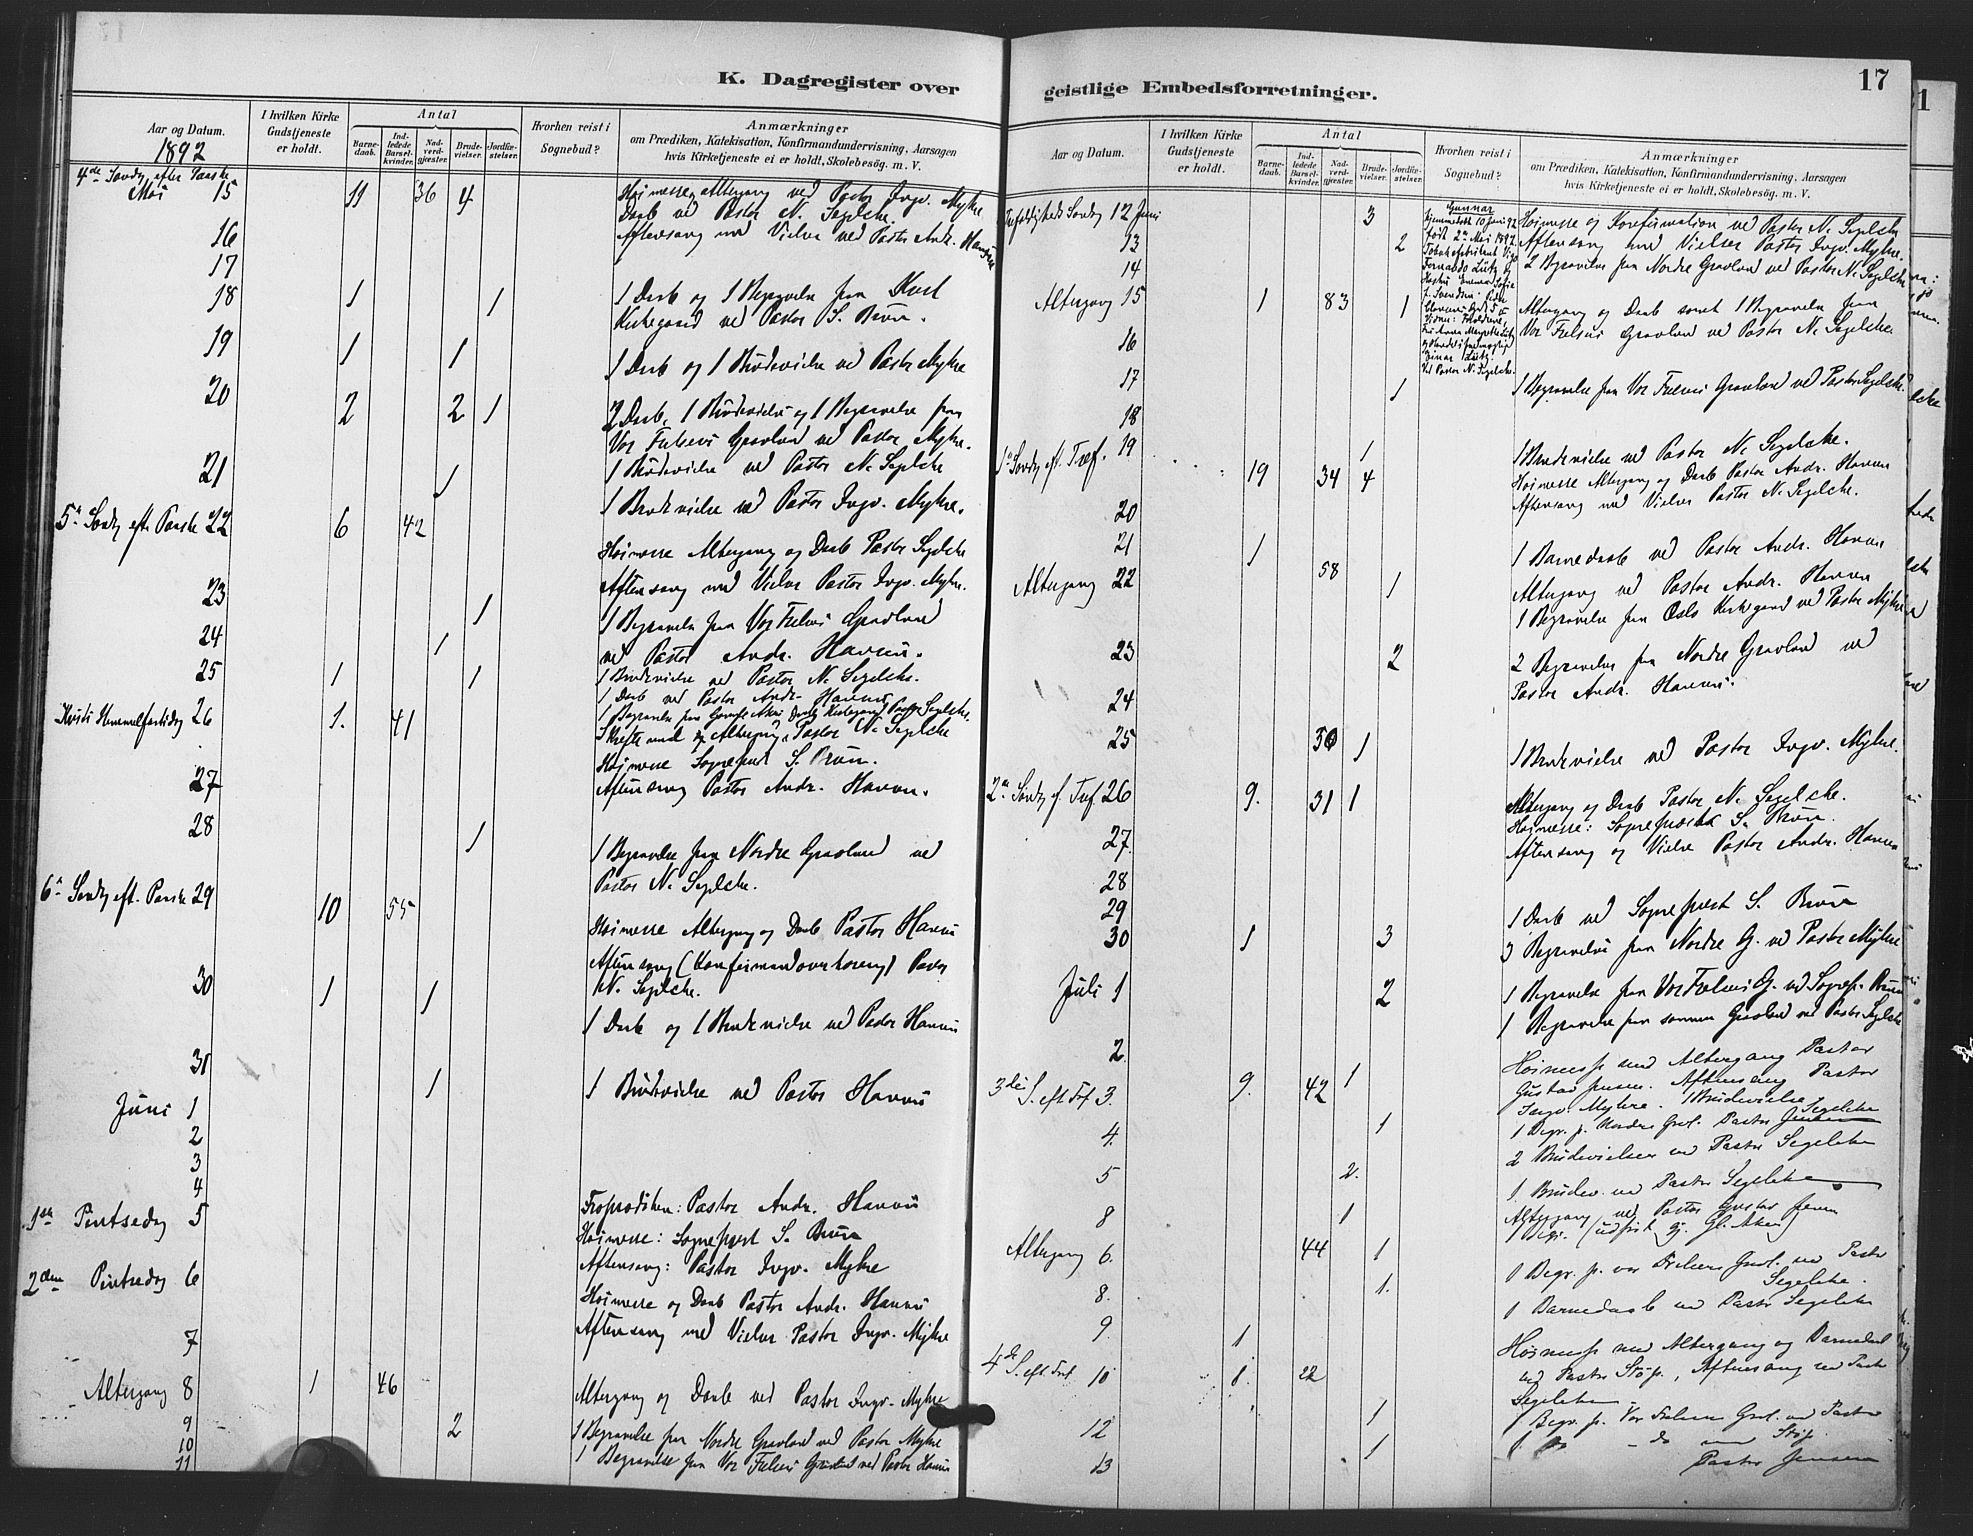 K. Dagregister over
Aar og Datum.
1892
I hvilken Kirke Gudstjeneste er holdt.
Antal
Barne-daab.
Ind-ledede Barsel-kvinder.
Nad-verd-gjæster.
Brude-vielser.
Jordfæ-stelser.
Hvorhen reist i Sognebud?
Anmærkninger
om Prædiken, Katekisation, Konfirmandundervisning, Aarsagen
hvis Kirketjeneste ei er holdt, Skolebesøg. m. V.
4de Søndg efter Paaske
Mai 15 19 36 4 Høimesse, Altergang ved Pastor Ingv. Myhre
Daab ved Pastor N. Segelcke.
16 Aftensang med Vielse ved Pastor Andr. Hansen
17
18 1 1 1 Daab og 1 Begravelse fra
Kirkegaard ved Pastor S. Bruun.
19 1 1 1 Daab og 1 Brudevielse ved Pastor Myhre
20 2 2 1 2 Daab, 1 Brudevielse og 1 Begravelse fra
Vor Frelsers Gravlund ved Pastor Myhre.
21 1 1 Brudevielse ved Pastor N. Segelcke
1 Brudevielse ved Pastor Ingv. Myhre.
5te Søndg eft. Paaske 22 6 42
Høimesse Altergang og Daab Pastor Segelcke
Aftensang med Vielse Pastor Ingv. Myhre.
23 1 1 Begravelse fra Vor Frelsers Gravlund
24 1 ved Pastor Andr. Hansen.
25 1 1 1 Brudevielse ved Pastor N. Segelcke.
1 Daab ved Pastor Andr. Hansen
1 Begravelse fra Gamle Akers Kirkegaard Pastor Segelcke.
Kristi Himmelfartsdag 26 1. 41 Skriftemaal og Altergang, Pastor N. Segelcke
Høimesse Sognepræst S. Bruun.
27 Aftensang Pastor Andr. Hansen.
28 1 1 Begravelse fra Nordre Gravlund ved
Pastor N. Segelcke.
6te Søndg eft. Paaske 29 10 55
Høimesse Altergang og Daab Pastor Hansen
Aftensang (Konfirmandoverhøring) Pastor
N. Segelcke.
30 1 1
1 Daab og 1 Brudevielse ved Pastor Hansen
31 1 1 Brudevielse ved Pastor Hansen
Juni 1
2
3
4
1ste Pintsedag 5 Froprædiken: Pastor Andr. Hansen
Høimesse: Sognepræst S. Bruun
Aftensang: Pastor Ingv. Myhre
2den Pintsedag 6 Høimesse og Daab Pastor Andr. Hansen
Aftensang med Vielse Pastor Ingv. Myhre
7
Altergang 8 1 46 Altergang og Daab ved Pastor Ingv. Myhre
9 2 1 Begravelse fra Nordre Gravlund ved Pastor Myhre
10 1 Begravelse fra Vor Frelsers Gravlund ved Pastor Hansen
11
geistlige Embedsforretninger.
17
Aar og Datum.
I hvilken Kirke Gudstjeneste er holdt.
Antal
Barne-daab.
Ind-ledede Barsel-kvinder.
Nad-verd-gjæster.
Brude-vielser.
Jordfæ-stelser.
Hvorhen reist i Sognebud?
Anmærkninger
om Prædiken, Katekisation, Konfirmandundervisning, Aarsagen
hvis Kirketjeneste ei er holdt, Skolebesøg. m. V.
Gunnar
Hjemmedøbt 10 Juni 92
født 2den Mai 1892.
Fernando Lütz og
Einar Lütz.
Ved Pastor N. Segelcke.
Trefoldigheds Søndg 12 Juni 3 Høimesse og Konfirmation ved Pastor N. Segelcke
13 2 Aftensang med Vielser Pastor Ingv. Myhre.
14 2 Begravelser fra Nordre Gravlund ved Pastor N. Segelcke
Altergang 15 1 83 1 Altergang og Daab samt 1 Begravelse fra
Vor Frelsers Gravlund ved Pastor N. Segelcke
16
17 1 1 Begravelse fra Vor Frelsers Gravlund ved Pastor Segelcke.
18 1 1 Brudevielse ved Pastor N. Segelcke.
1ste Søndg eft. Tref. 19 19 34 4 Høimesse Altergang og Daab Pastor Andr. Hansen
Aftensang med Vielser Pastor N. Segelcke.
20
21 1 1 Barnedaab ved Pastor Andr. Hansen
Altergang 22 58 1 Altergang ved Pastor Andr. Hansen
1 Begravelse fra Oslo Kirkegaard ved Pastor Myhre
23 2 2 Begravelser fra Nordre Gravlund ved
Pastor Andr. Hansen.
24
25 30 1 1 Brudevielse ved Pastor Ingv. Myhre.
2den Søndg e. Tref 26 9. 31 1 Altergang og Daab Pastor N. Segelcke.
Høimesse: Sognepræst S. Bruun.
27. Aftensang og Vielse Pastor Andr. Hansen
28
29 1 Daab ved Sognepræst S. Bruun
30 1 3 3 Begravelser fra Nordre G. ved Pastor Myhre
Juli 1 2 1 Begravelse fra Vor Frelsers G. ved Sognep. Bruun
1 Begravelse fra samme Gravlund ved Pastor Segelcke
2.
3die S. eft Tref 3. 9. 42 1 Høimesse med Altergang Pastor
Gustav Jensen. Aftensang Pastor
Ingv. Myhre. 1 Brudevielse
4. 1 1 Begr. p. Nordre Gravl. Pastor Jensen Segelcke
5 2. 2 Brudevielser ved Pastor Segelcke
8 1 1 Brudev. ved Pastor Segelcke
Altergang 6. 44 1 Altergang ved Pastor Gustav Jensen
1 Begr. (udført Gl. Aker)
8. 1. 1 Begr. p. vor Frelsers Gravl. ved Pastor
Segelcke.
9. 1 1 Barnedaab ved Pastor Segelcke
4de S. eft Tref 10 8. 22 Høimesse med Altergang og Barnedaab
ved Pastor Støp., Aftensang ved Pastor
Segelcke
12 1 1 Begr. p. Vor Frelsers Gravl. ved Pastor
Støp.
13 1 1 do - do ved
Pastor Jensen